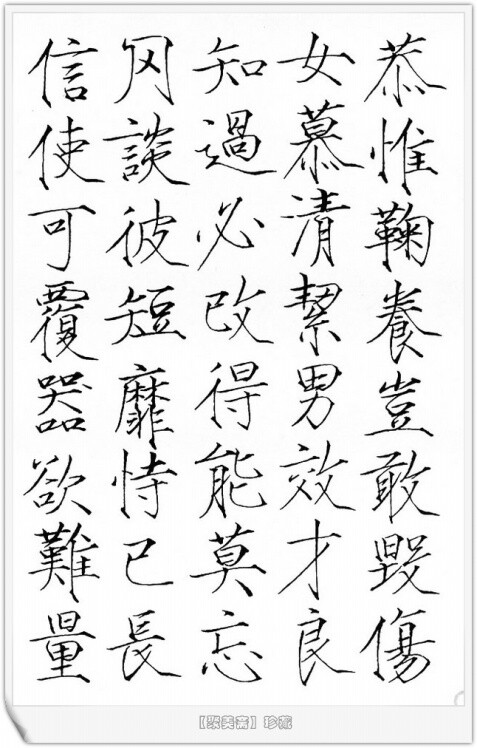 恭惟鞠養豈敢毀傷
女慕清絜男效才良
知過必改得能莫忘
罔談彼短靡恃己長
信使可覆器欲難量
【聚美斋】珍藏